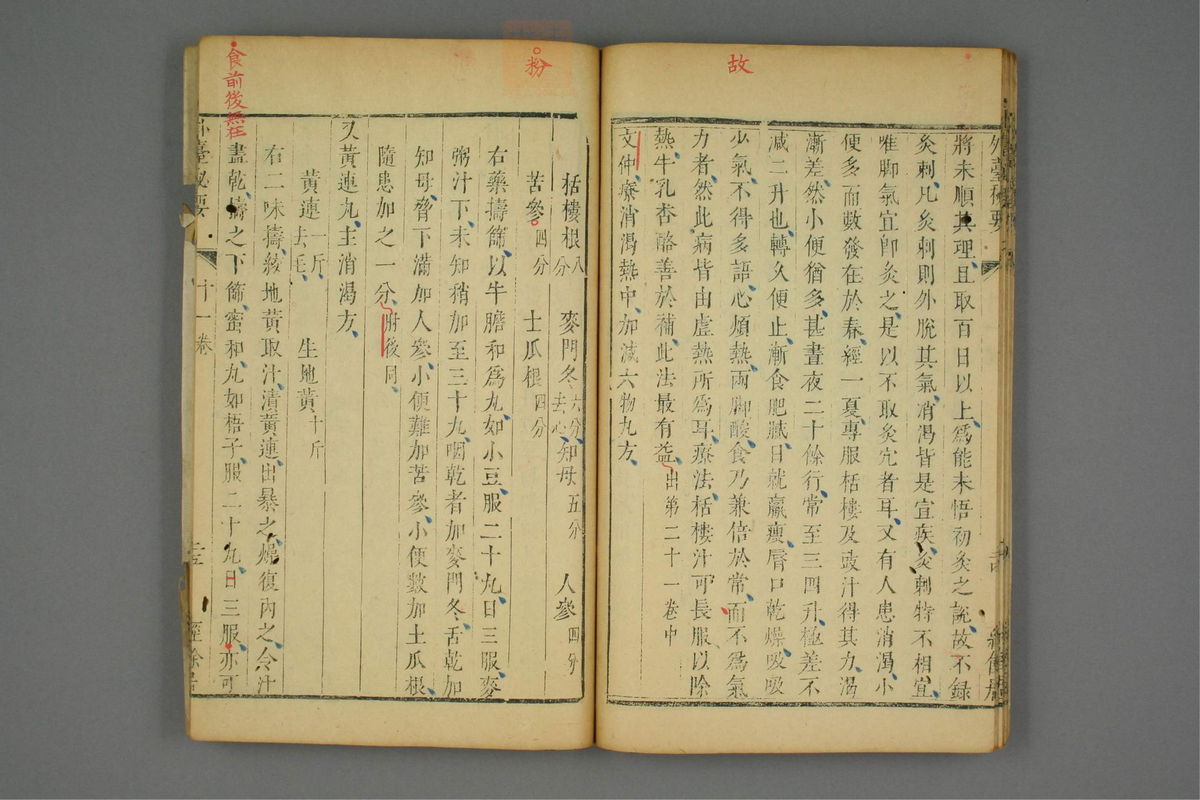 故
將未順其理且取百日以上爲能未悟初灸之說故不錄
灸刺凡灸刺則外脫其氣消渴皆是宜疾灸刺特不相宜
唯脚氣宜卽灸之是以不取灸穴者耳又有人患消渴小
便多而數發在於春經一夏專服栝樓及豉汁得其力渴
漸差然小便猶多甚晝夜二十餘行常至三四升極差不
減二升也轉久便止漸食肥膩日就羸瘦脣口乾燥吸吸
少氣不得多語心煩熱兩脚酸食乃兼倍於常而不爲氣
力者然此病皆由虛熱所爲耳療法栝樓汁可長服以除
熱牛乳杏酪善於補此法最有益出第二十一卷中
文仲療消渴熱中加減六物丸方
粉
栝樓根八分 麥門冬六分去心 知母五分 人參四分
苦參四分 土瓜根四分
右藥擣篩以牛膽和爲丸如小豆服二十丸日三服麥
粥汁下未知稍加至三十丸咽乾者加麥門冬舌乾加
知母脅下滿加人參小便難加苦參小便數加土瓜根
隨患加之一分肘後同
又黃連丸主消渴方
黃連一斤去毛 生地黃十斤
右二味擣絞地黃取汁漬黃連出暴之燥復內之令汁
盡乾擣之下篩蜜和丸如梧子服二十丸日三服亦可
食前後無在
外臺秘要 十一卷